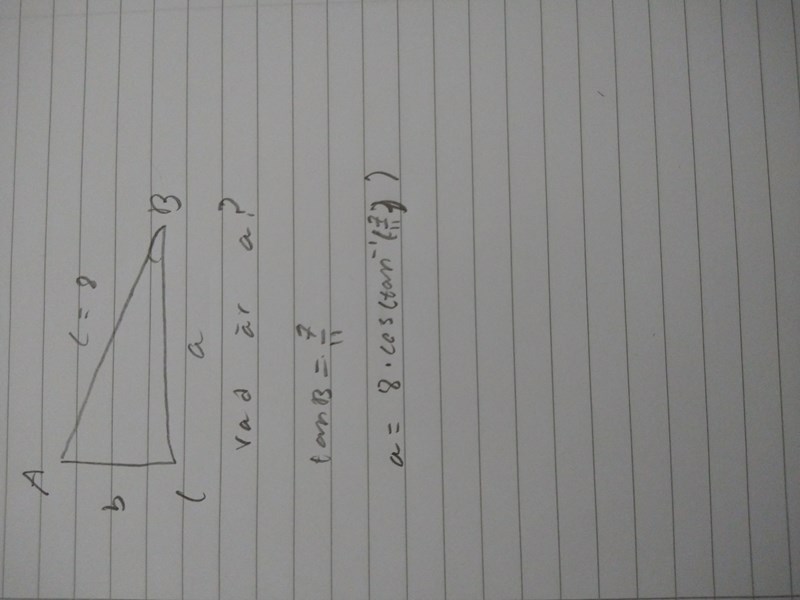 A
c = 8
B
b
C
a
vad är a?
tanB = 7/11
a = 8 · cos(tan⁻¹(7/11))